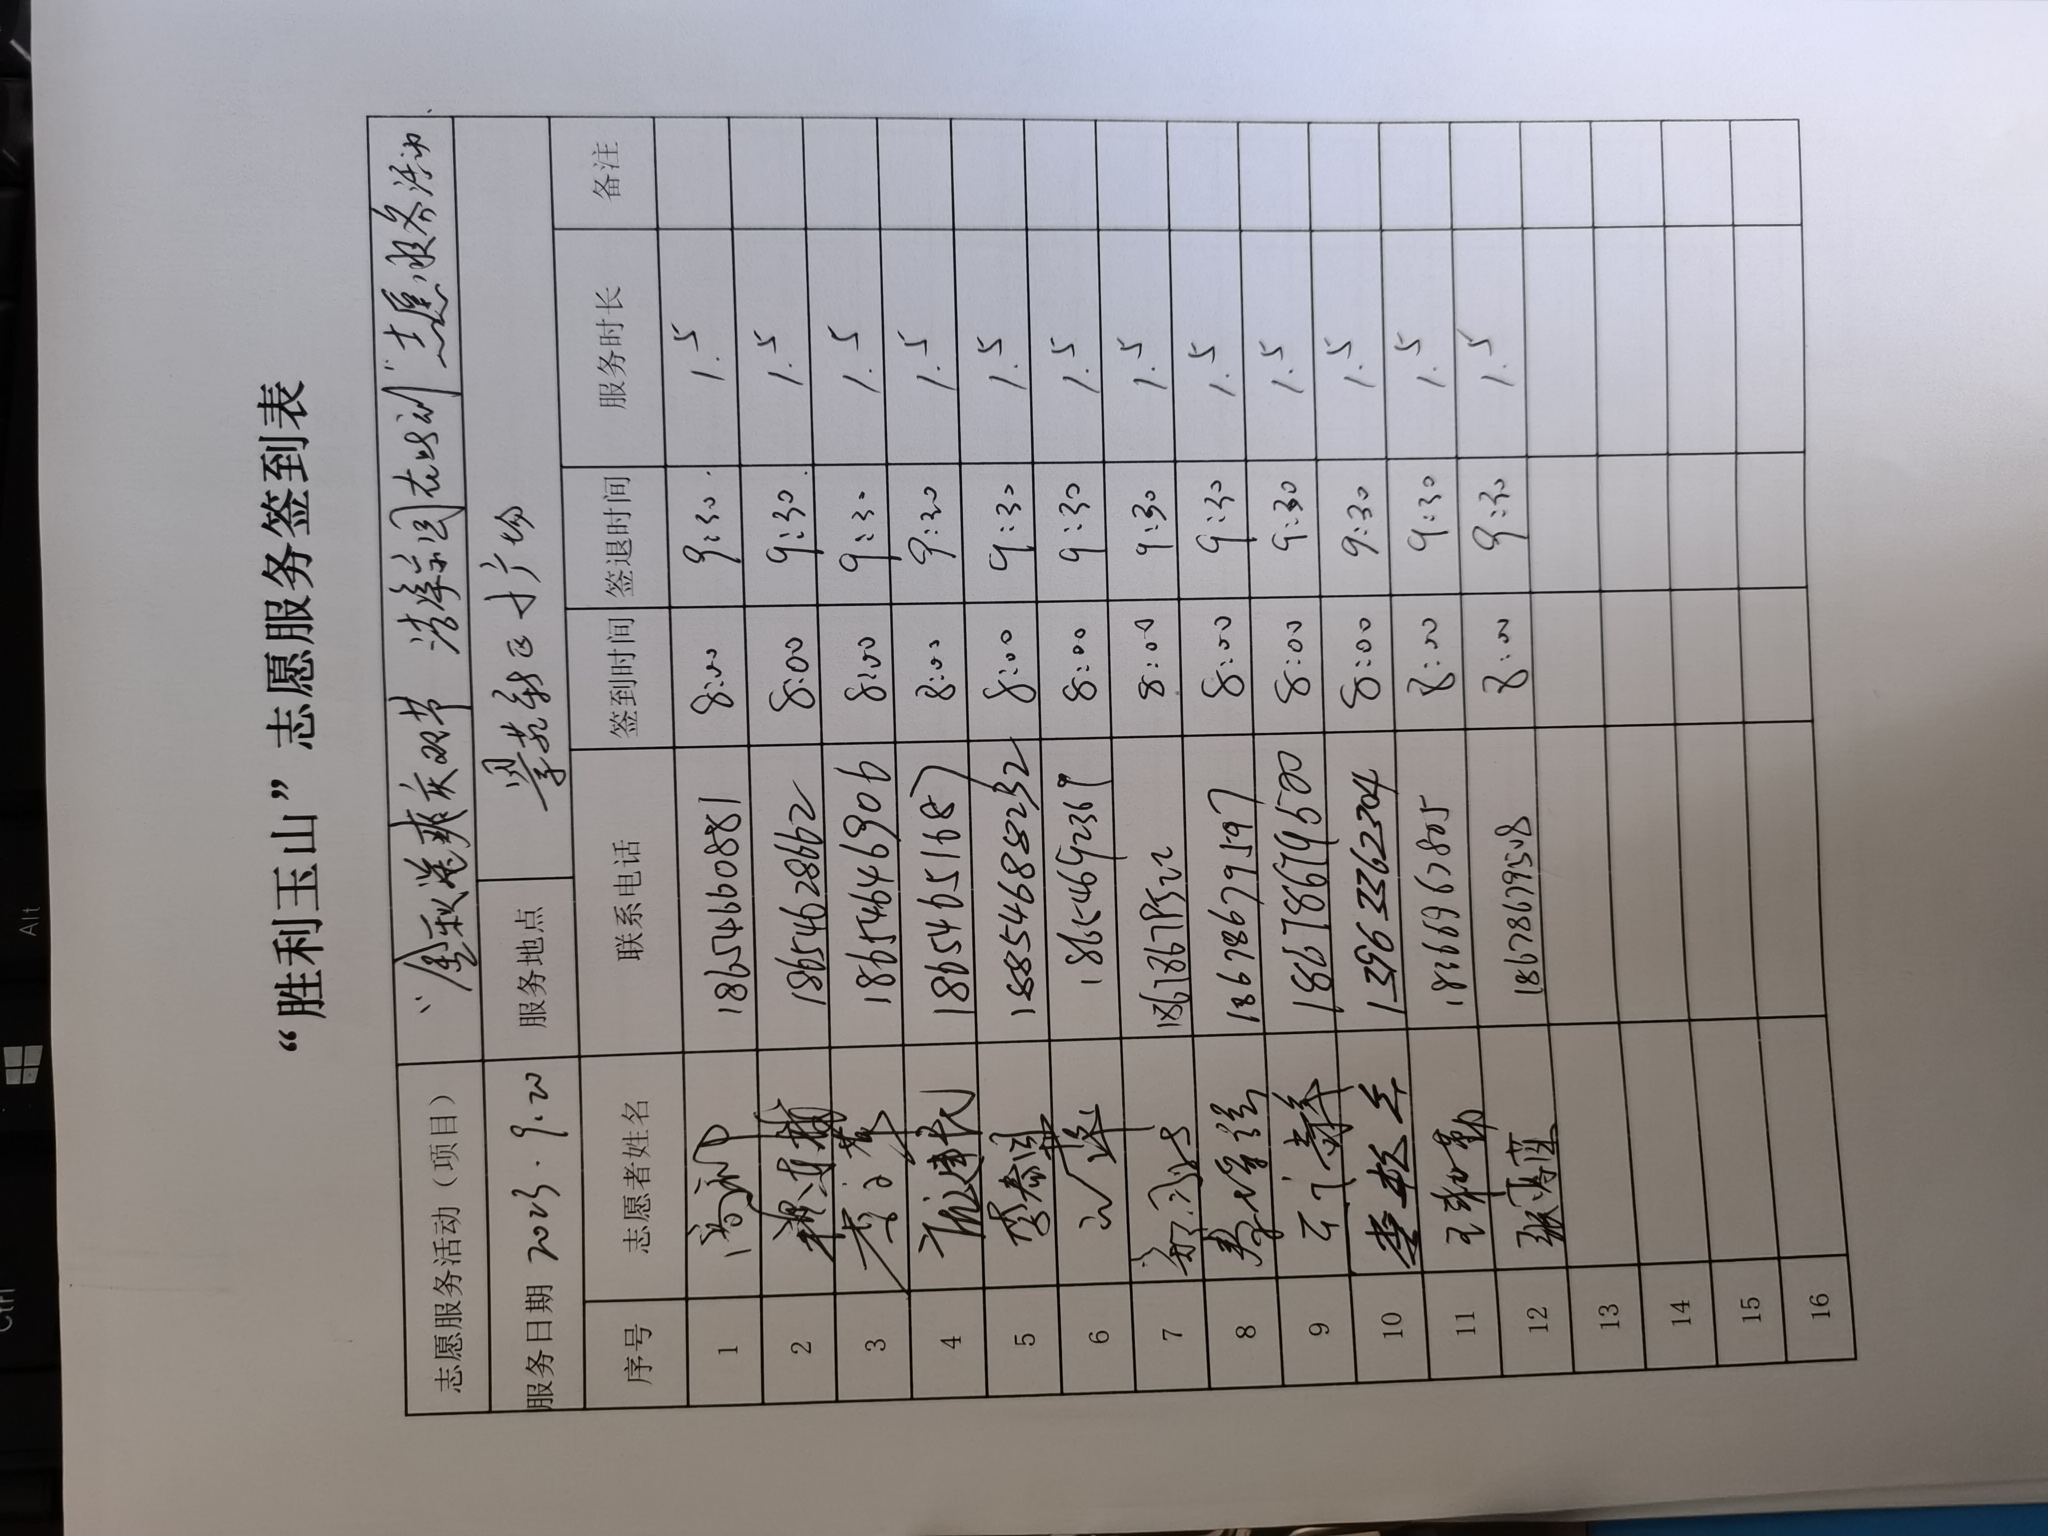 “胜利玉山”志愿服务签到表
志愿服务活动（项目） “金秋送爽庆双节 清洁家园在行动”志愿服务活动
服务日期 2023.9.20 服务地点 翠苑新区广场
序号 志愿者姓名 联系电话 签到时间 签退时间 服务时长 备注
1 18654660881 8:00 9:30 1.5
2 18654628662 8:00 9:30 1.5
3 18654646906 8:00 9:30 1.5
4 18654651687 8:00 9:30 1.5
5 李春国 18854688232 8:00 9:30 1.5
6 18654692369 8:00 9:30 1.5
7 8:00 9:30 1.5
8 18678679597 8:00 9:30 1.5
9 18678679500 8:00 9:30 1.5
10 13963362304 8:00 9:30 1.5
11 18366967805 8:00 9:30 1.5
12 18678679508 8:00 9:30 1.5
13
14
15
16
Ctrl
Alt